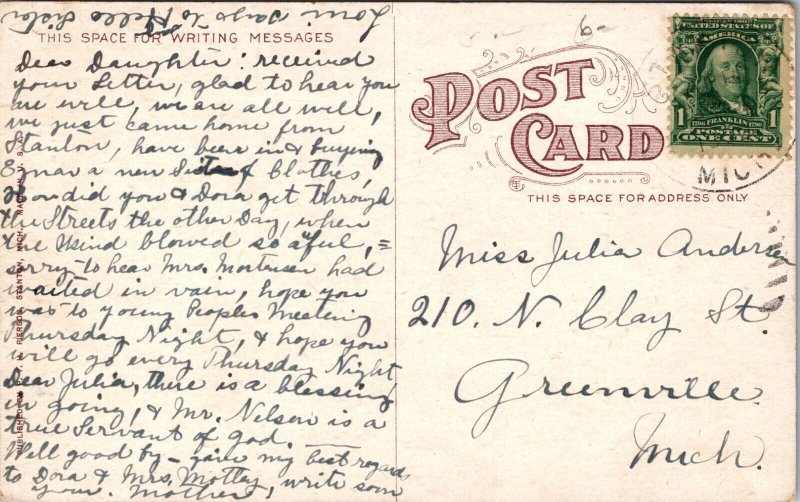 Lorn says to Hello Sister
THIS SPACE FOR WRITING MESSAGES
Dear Daughter: received
your Letter, glad to hear you
are well, we are all well,
we just came home from
Stanton, have been in & buying
Egnar a new Suit of Clothes,
How did you & Dora get through
the Streets the other Day, when
the Wind blowed so aful, =
sorry to hear Mrs. Mortensen had
waited in vain, hope you
was to young Peoples Meeting
Thursday Night, & hope you
will go every Thursday Night
Dear Julia, there is a blessing
in going, & Mr. Nelson is a
true Servant of god.
Well good by - give my best regards
to Dora & Mrs. Mottey, write soon
your Mother
PIERSON, STANTON, MICH.
POST CARD
THIS SPACE FOR ADDRESS ONLY
6-
SERIES 1902
UNITED STATES OF
AMERICA
1 1
1706 FRANKLIN 1790
POSTAGE
ONE CENT
MICH
Miss Julia Andersen
210. N. Clay St.
Greenville.
Mich.